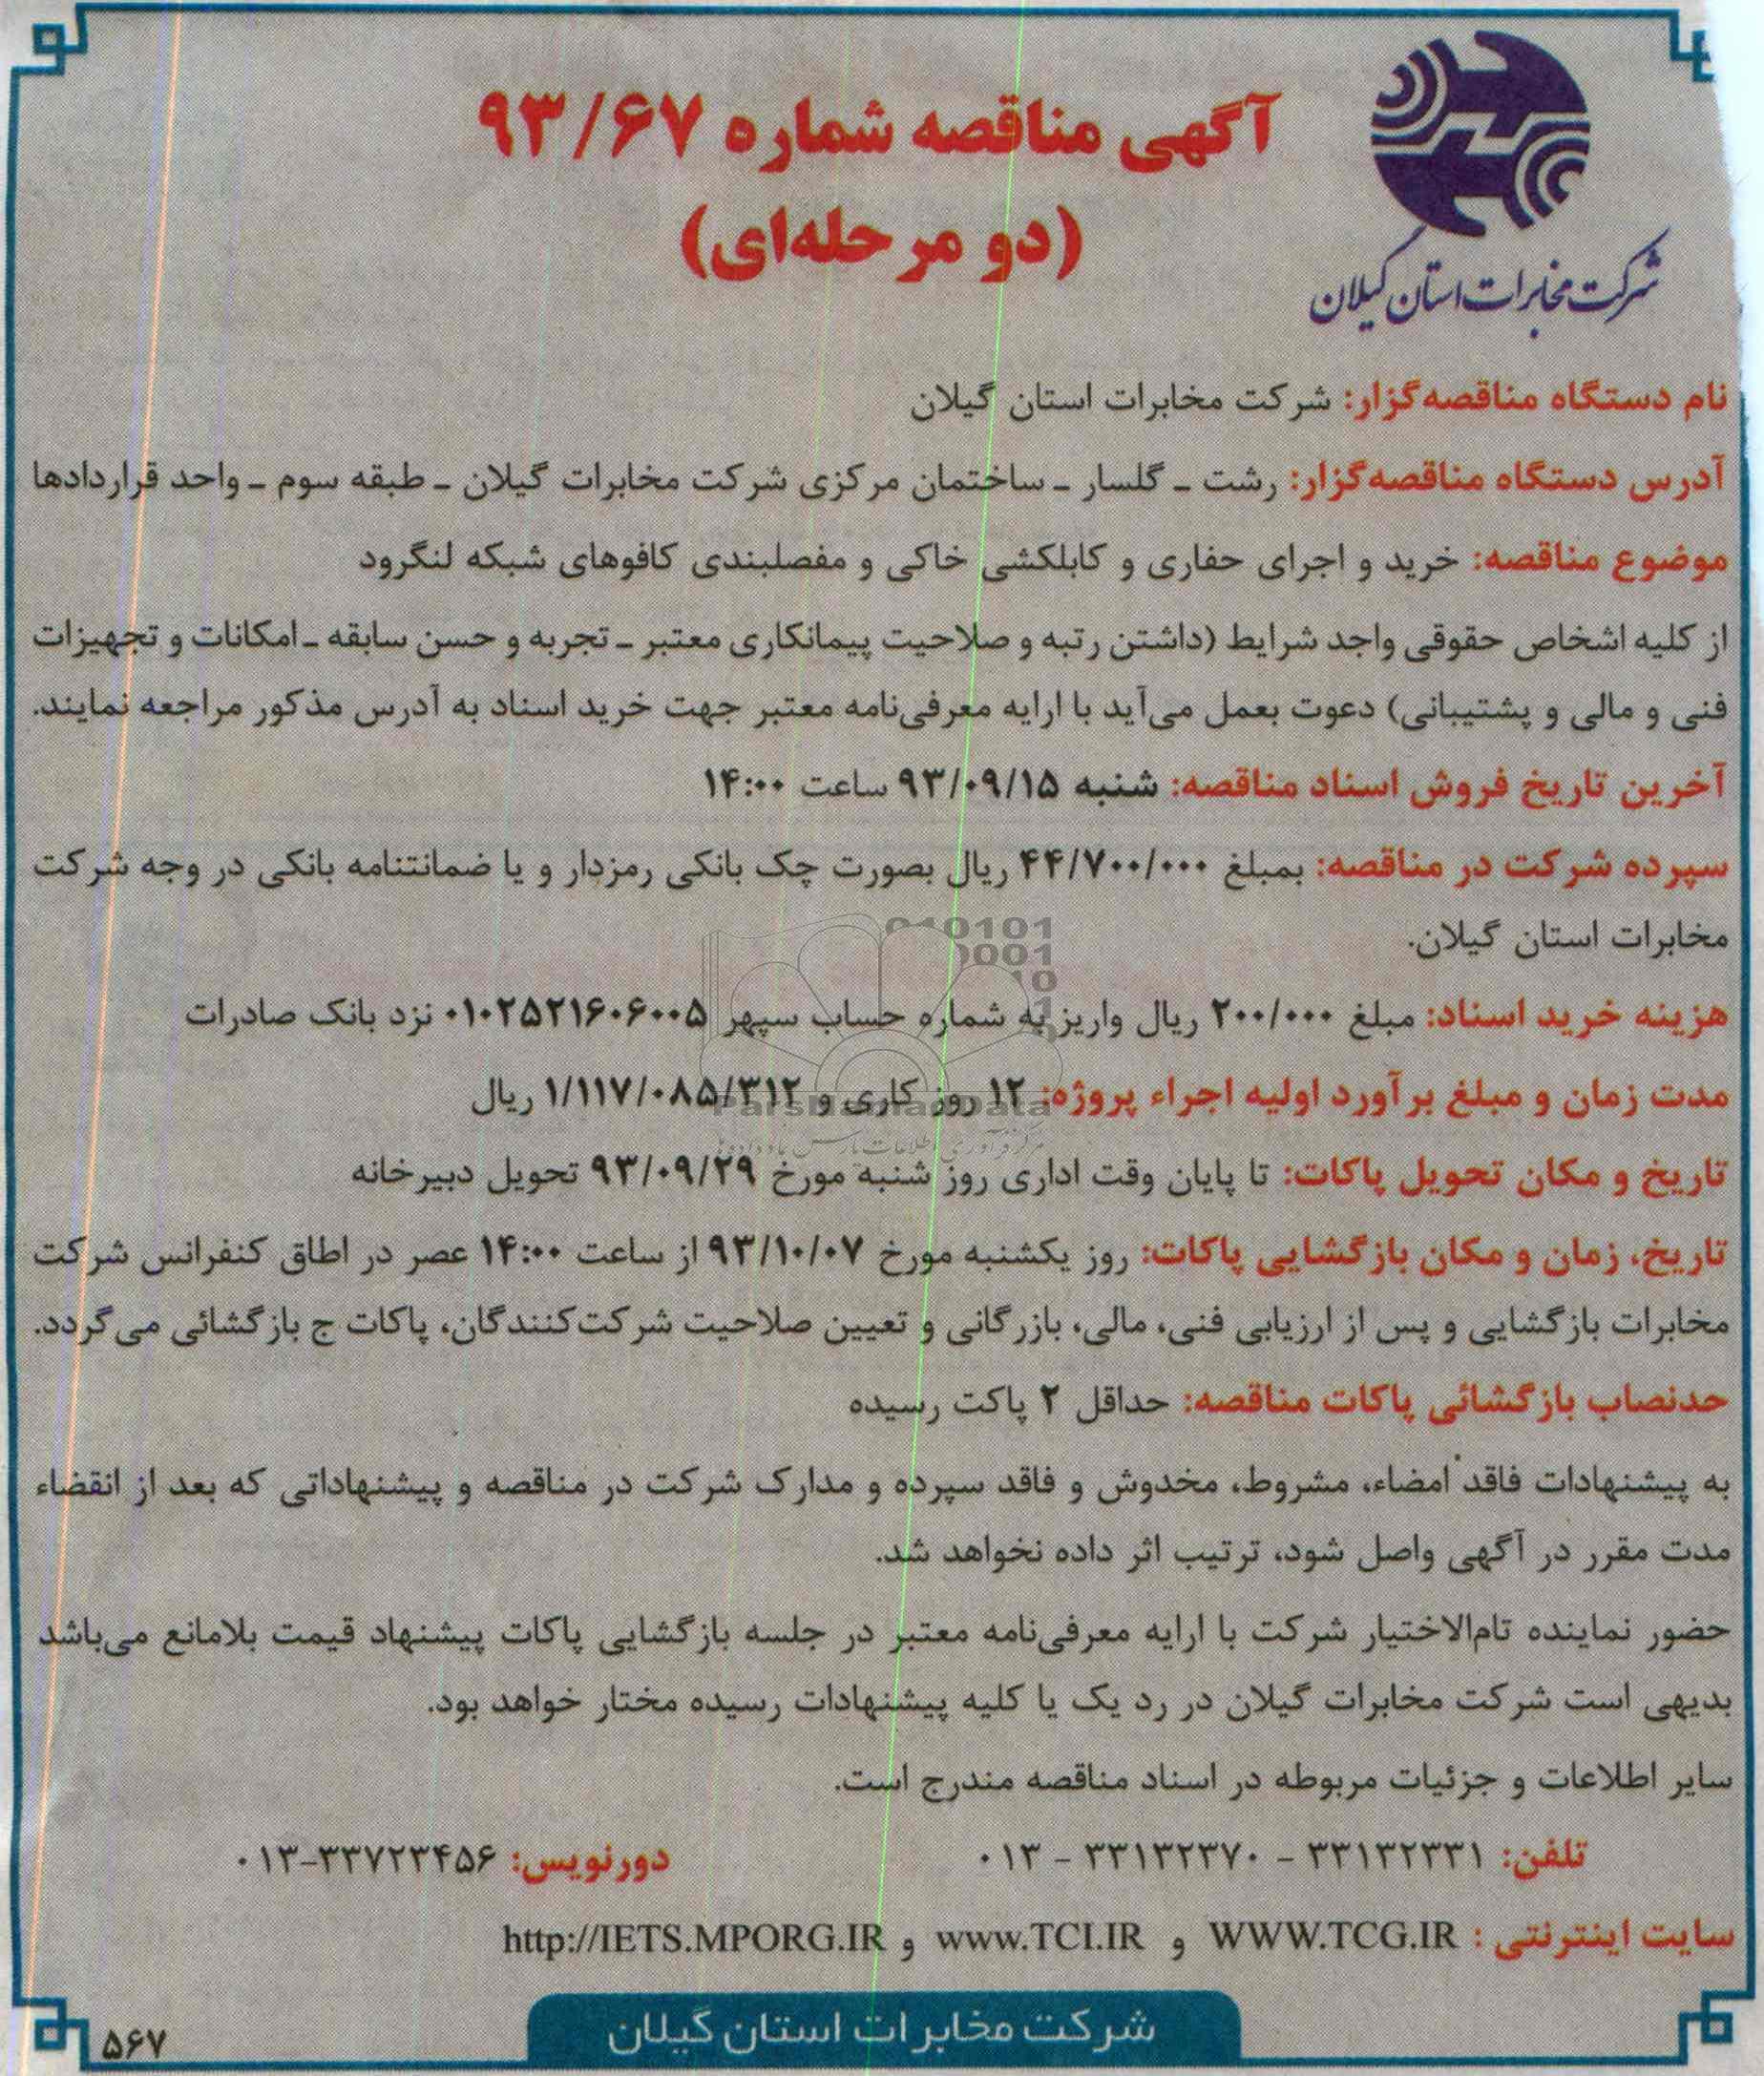 شرکت مخابرات استان گیلان
آگهی مناقصه شماره ۹۳/۶۷
(دو مرحله‌ای)
نام دستگاه مناقصه‌گزار: شرکت مخابرات استان گیلان
آدرس دستگاه مناقصه‌گزار: رشت ـ گلسار ـ ساختمان مرکزی شرکت مخابرات گیلان ـ طبقه سوم ـ واحد قراردادها
موضوع مناقصه: خرید و اجرای حفاری و کابلکشی خاکی و مفصلبندی کافوهای شبکه لنگرود
از کلیه اشخاص حقوقی واجد شرایط (داشتن رتبه و صلاحیت پیمانکاری معتبر ـ تجربه و حسن سابقه ـ امکانات و تجهیزات
فنی و مالی و پشتیبانی) دعوت بعمل می‌آید با ارایه معرفی‌نامه معتبر جهت خرید اسناد به آدرس مذکور مراجعه نمایند.
آخرین تاریخ فروش اسناد مناقصه: شنبه ۹۳/۰۹/۱۵ ساعت ۱۴:۰۰
سپرده شرکت در مناقصه: بمبلغ ۴۴/۷۰۰/۰۰۰ ریال بصورت چک بانکی رمزدار و یا ضمانتنامه بانکی در وجه شرکت
مخابرات استان گیلان.
هزینه خرید اسناد: مبلغ ۲۰۰/۰۰۰ ریال واریز به شماره حساب سپهر ۰۱۰۲۵۲۱۶۰۶۰۰۵ نزد بانک صادرات
مدت زمان و مبلغ برآورد اولیه اجراء پروژه: ۱۲ روز کاری و ۱/۱۱۷/۰۸۵/۳۱۲ ریال
ParsNamadData
مرکز فرآوری اطلاعات پارس نماد داده‌ها
تاریخ و مکان تحویل پاکات: تا پایان وقت اداری روز شنبه مورخ ۹۳/۰۹/۲۹ تحویل دبیرخانه
تاریخ، زمان و مکان بازگشایی پاکات: روز یکشنبه مورخ ۹۳/۱۰/۰۷ از ساعت ۱۴:۰۰ عصر در اطاق کنفرانس شرکت
مخابرات بازگشایی و پس از ارزیابی فنی، مالی، بازرگانی و تعیین صلاحیت شرکت‌کنندگان، پاکات ج بازگشائی می‌گردد.
حدنصاب بازگشائی پاکات مناقصه: حداقل ۲ پاکت رسیده
به پیشنهادات فاقد امضاء، مشروط، مخدوش و فاقد سپرده و مدارک شرکت در مناقصه و پیشنهاداتی که بعد از انقضاء
مدت مقرر در آگهی واصل شود، ترتیب اثر داده نخواهد شد.
حضور نماینده تام‌الاختیار شرکت با ارایه معرفی‌نامه معتبر در جلسه بازگشایی پاکات پیشنهاد قیمت بلامانع می‌باشد
بدیهی است شرکت مخابرات گیلان در رد یک یا کلیه پیشنهادات رسیده مختار خواهد بود.
سایر اطلاعات و جزئیات مربوطه در اسناد مناقصه مندرج است.
تلفن: ۳۳۱۳۲۳۳۱ - ۳۳۱۳۲۳۷۰ - ۰۱۳ دورنویس: ۳۳۷۲۳۴۵۶-۰۱۳
سایت اینترنتی : WWW.TCG.IR و www.TCI.IR و http://IETS.MPORG.IR
شرکت مخابرات استان گیلان
۵۶۷